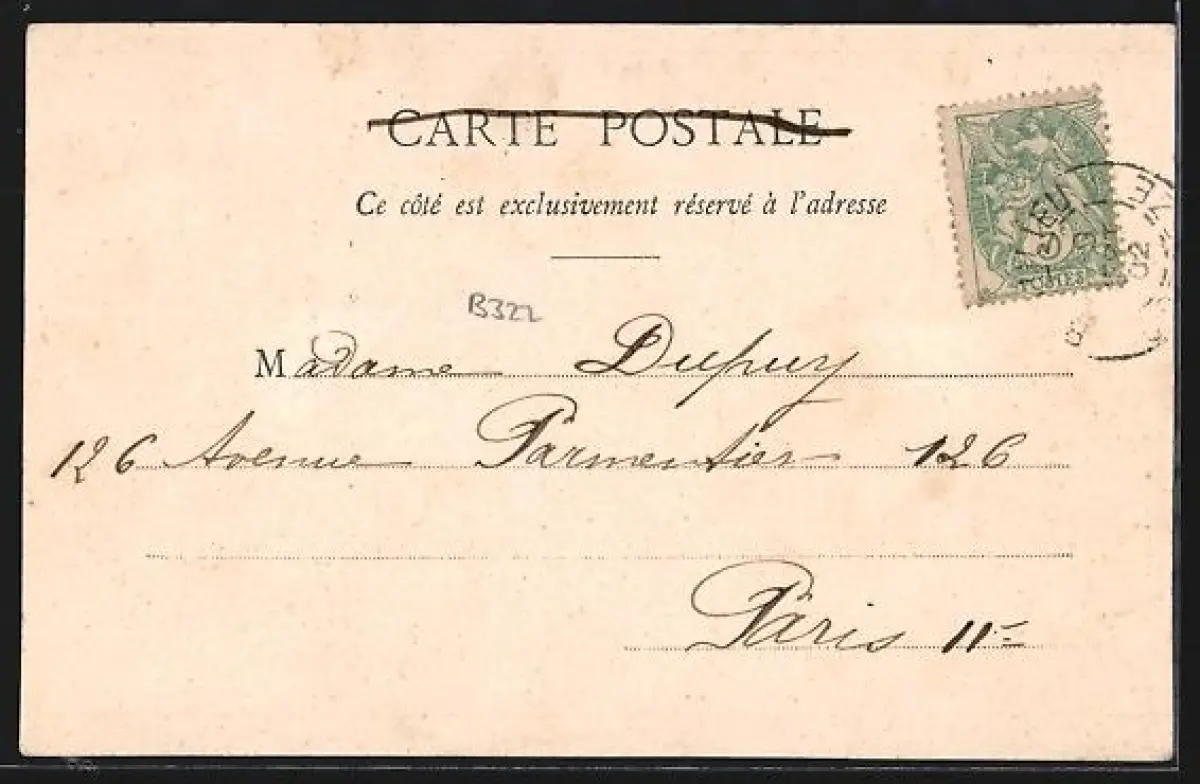 CARTE POSTALE
Ce côté est exclusivement réservé à l'adresse
B322
Madame Dupuy
126 Avenue Parmentier 126
Paris 11e
5
POSTES
02